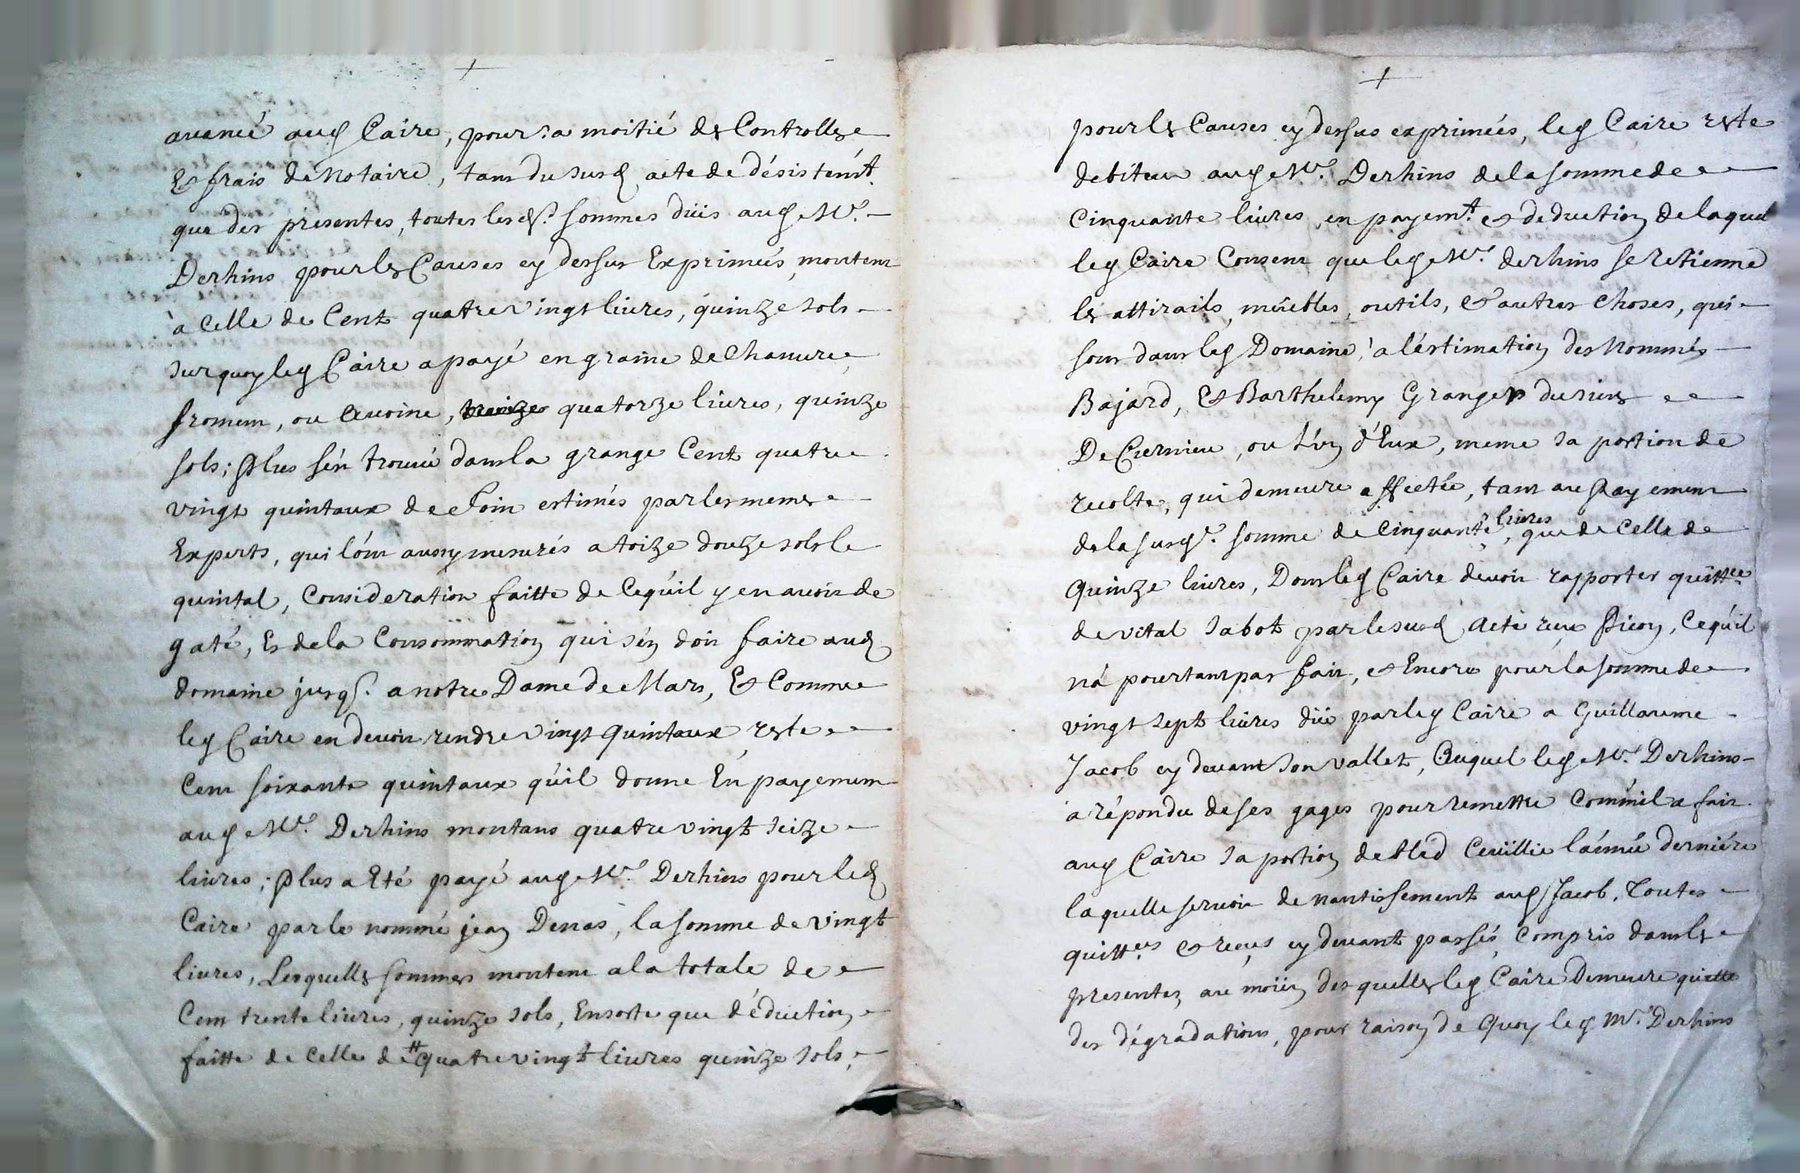 +
avancé aud Caire, pour sa moitié des Controlles
Et frais de Notaire, tant du susd acte de désistemt.
que des presentes, toutes lesds. sommes düis aud Mr.
Derhins pour les Causes cy dessus Exprimées, montent
à Celle de Cent quatre vingt livres, quinze sols
surquoy led Caire a payé en graine de Chanvre,
froment, ou avoine, quatorze livres, quinze
sols; Plus s'én trouvé dans la grange Cent quatre
vingt quintaux de Foin estimés par les memes
Experts, qui l'ónt aussy mesurés a toize douze sols le
quintal, Consideration faitte de Cequ'il y en avoir de
gaté, Et de la Consommation qui s'én doit faire aud
domaine jusqs. a notre Dame de Mars, Et Comme
led Caire en devoit rendre vingt quintaux, reste
Cent soixante quintaux qu'il donne En payement
aud Mr. Derhins montans quatre vingt seize
livres; Plus a Eté payé aud Mr. Derhins pour led
Caire par le nommé jean Denas, la somme de vingt
livres, Lesquelles sommes montent a la totale de
Cent trente livres, quinze sols, Ensorte que déduction
faitte de Celle de # quatre vingt livres quinze sols,
+
pour les Causes cy dessus exprimées, led Caire reste
debiteur aud Mr. Derhins de la somme de
Cinquante livres, en payemt. et deduction de laquel
led Caire Consent que led Mr. derhins se retienne
les attirails, meübles, outils, & autres choses, qui
sont dans led Domaine, à l'éstimation des Nommés
Bajard, Et Barthelemy Granger du rieux
De Curnieu, ou l'ún d'Eux, meme sa portion de
recolte, qui demeure affectée, tant au Payement
de la susde. somme de Cinquante livres, que de Celle de
Quinze livres, Dont led Caire devoit rapporter quittce
de vital Sabot par le susd Acte reçu Picon, Cequ'il
n'a pourtant pas fait, et Encore pour la somme de
vingt sept livres düe par led Caire a Guillaume
Jacob cy devant son vallet, Auquel led Mr. Derhins
a répondu de ses gages pour remettre Comm'il a fait
aud Caire sa portion de bled Ceuillie l'année derniére
laquelle servoit de nantissement aud Jacob, Toutes
quittces et reçus cy devant passés, Compris dans les
presentes, au moïen desquelles led Caire Demeure quitte
des dégradations, pour raison de Quoy led Mr. Derhins